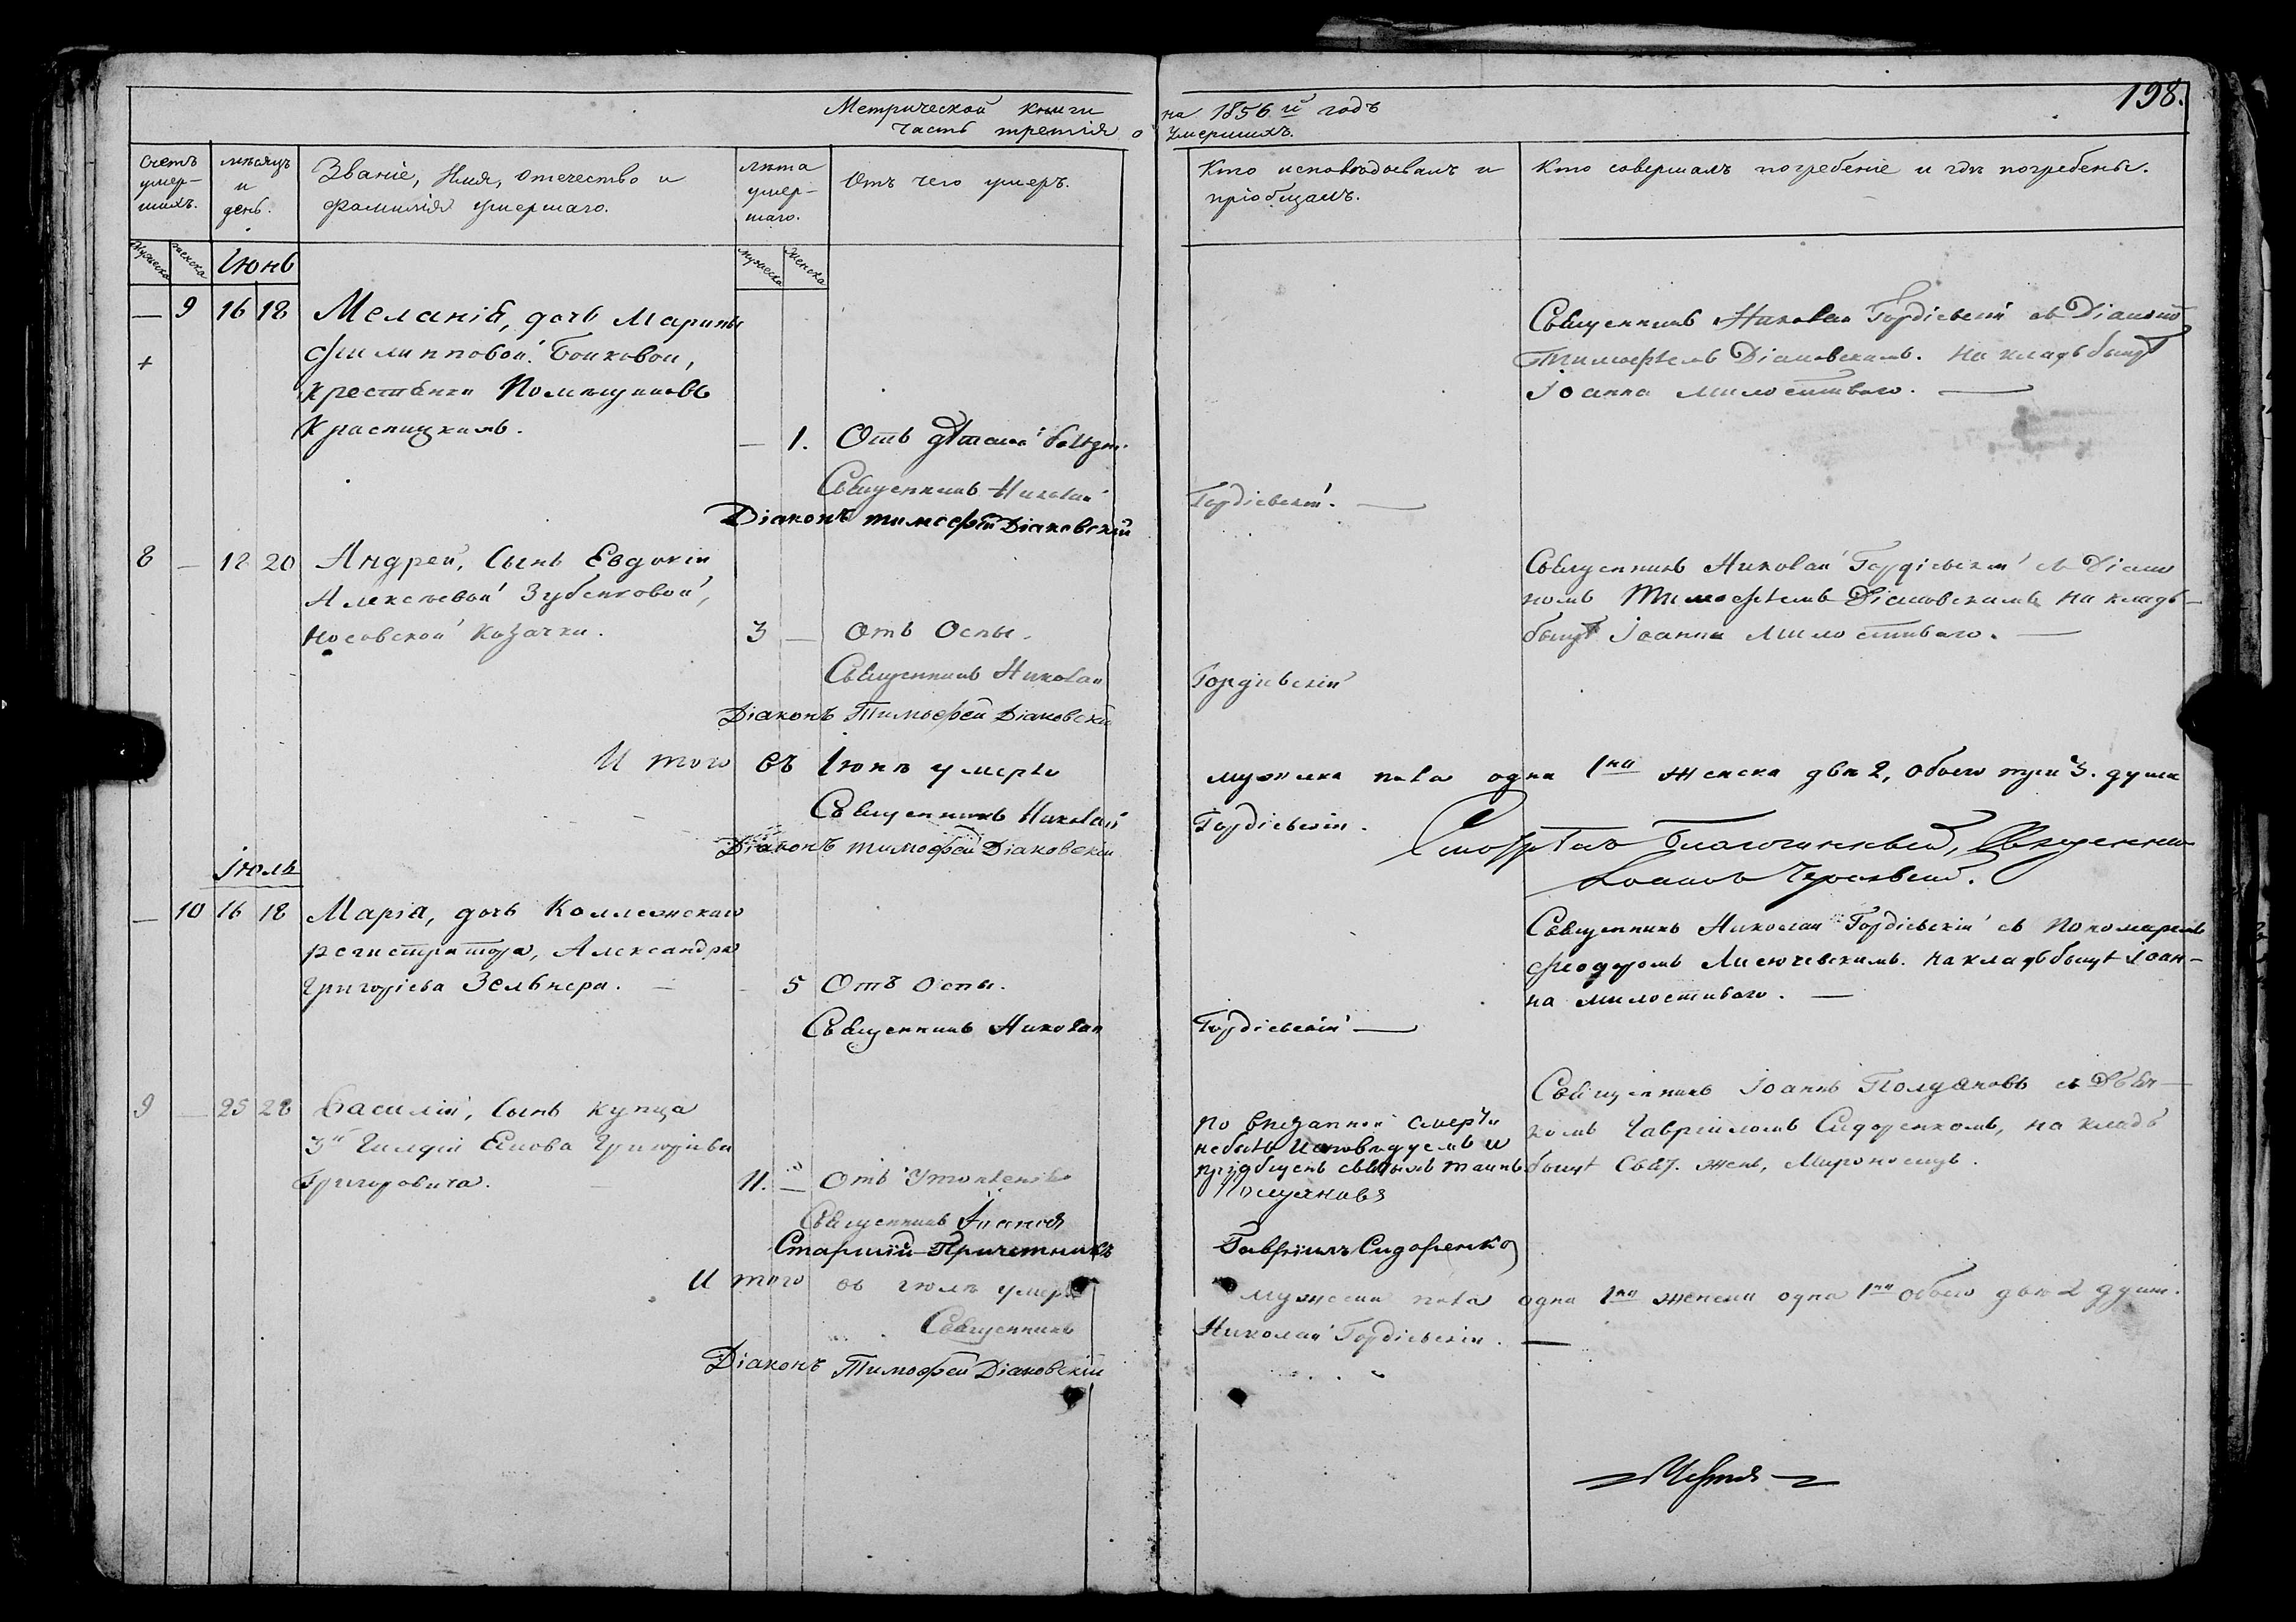 198.
Метрической книги на 1856 й годъ
часть третія о умершихъ.
Счетъ умер-шихъ.
мѣсяцъ и день.
Званіе, Имя, отечество и
фамилія умершаго.
лѣта умер-шаго.
Отъ чего умеръ.
Кто исповѣдывалъ и
пріобщалъ.
Кто совершалъ погребеніе и гдѣ погребены.
мужеска женска
Іюнь
мужеска женска
— 9 16 18 Меланія, дочь Марины
Филипповой Бойковой,
крестьянки Помѣщиковъ
Красницкихъ.
+
— 1. Отъ дѣтской болѣзни.
Священникъ Николай Гордіевскій с Діакономъ
Тимофѣемъ Діаковскимъ. на кладбищѣ
Іоанна милостиваго. —
Священникъ Николай Гордіевскій. —
Діаконъ тимофей Діаковскій
8 — 18 20 Андрей, сынъ Евдокіи
Алексѣевой Зубенковой,
носовской козачки.
3 — Отъ Оспы.
Священникъ Николай Гордіевскій съ Діако
номъ Тимофѣемъ Діаковскимъ на клад-
бищѣ Іоанна Милостиваго. —
Священникъ Николай Гордіевскій
Діаконъ Тимофей Діаковскій
И того въ Іюнѣ умерло мужеска пола одна 1на женска двѣ 2, обоего три 3. души
Священникъ Николай Гордіевскій.
Діаконъ тимофей Діаковскій
Смотрѣлъ Благочинный, Священникъ
Іоаннъ
Іюль
— 10 16 18 Марія, дочь Коллежскаго
регистратора, Александра
Григоріева Зельнера. —
— 5 Отъ Оспы.
Священникъ Николай Гордіевскій съ Пономаремъ
Феодоромъ Лисючевскимъ. на кладбищѣ Іоан-
на милостиваго. —
Священникъ Николай Гордіевскій —
9 — 25 28 Василій, сынъ купца
3й Гилдіи Якова Григоріева
Григоровича.
11. — Отъ Утопленія
по внезапной смерти
небылъ исповѣдуемъ и
пріобщенъ святыхъ таинъ
Священникъ Іоаннъ Полуяновъ съ Дьяч-
комъ Гавріиломъ Сидоренкомъ, на клад
бищѣ Свят. жень, Мироносицъ.
Священникъ Іоаннъ Полуяновъ
Старшій Причетникъ Гавріилъ Сидоренко
И того въ іюлѣ умерло мужеска пола одна 1на женска одна 1на обоего двѣ 2 души.
Священникъ Николай Гордіевскій. —
Діаконъ Тимофей Діаковскій